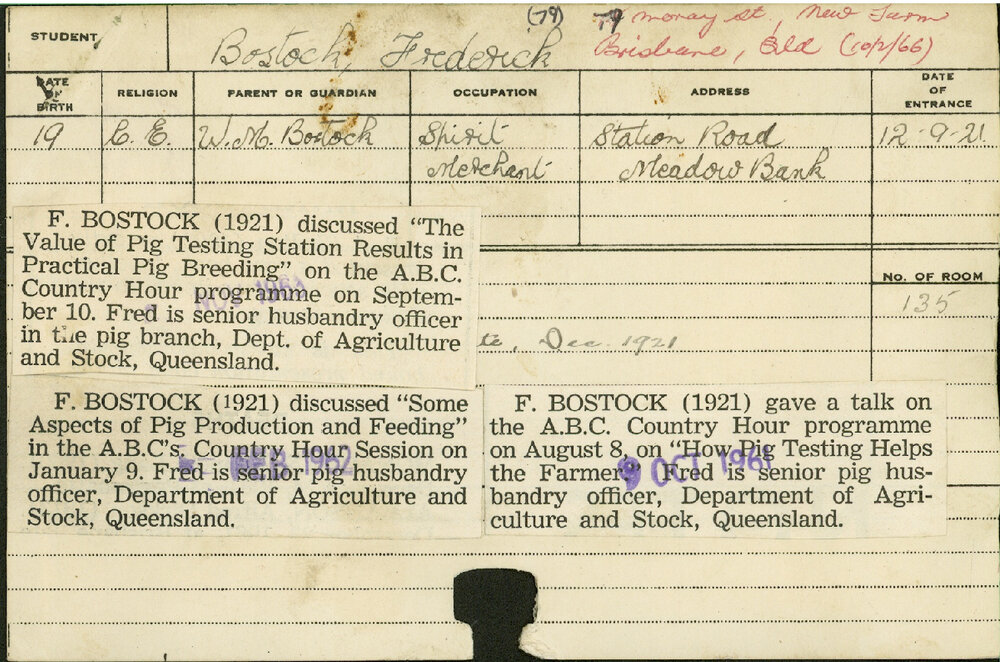 (79) 79 Moray St, New Farm
STUDENT Bostock, Frederick Brisbane, Qld (10/2/66)
DATE OF BIRTH RELIGION PARENT OR GUARDIAN OCCUPATION ADDRESS DATE OF ENTRANCE
19 C.E. W.M. Bostock Spirit Station Road 12-9-21
Merchant Meadow Bank
F. BOSTOCK (1921) discussed "The
Value of Pig Testing Station Results in
Practical Pig Breeding" on the A.B.C.
Country Hour programme on Septem-
ber 10. Fred is senior husbandry officer
in the pig branch, Dept. of Agriculture
and Stock, Queensland.
No. OF ROOM
135
te, Dec. 1921
F. BOSTOCK (1921) discussed "Some
Aspects of Pig Production and Feeding"
in the A.B.C's. Country Hour Session on
January 9. Fred is senior pig husbandry
officer, Department of Agriculture and
Stock, Queensland.
FEB 1962
F. BOSTOCK (1921) gave a talk on
the A.B.C. Country Hour programme
on August 8, on "How Pig Testing Helps
the Farmer." Fred is senior pig hus-
bandry officer, Department of Agri-
culture and Stock, Queensland.
9 OCT 1961